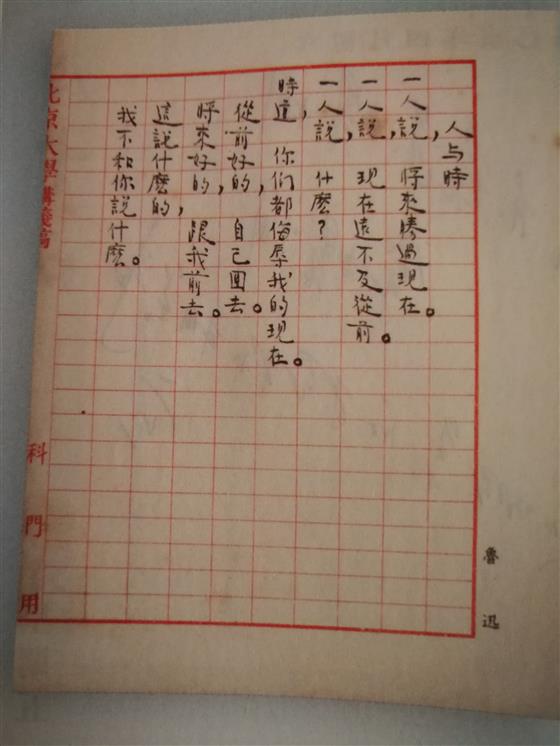 人与時
一人說，將來勝過現在。
一人說，現在遠不及從前。
一人說，什麽？
時道，你们都侮辱我的現在。
從前好的，自己回去。
將來好的，跟我前去。
這說什麽的，
我不和你說什麽。
北京大學講義稿
科
門
用
魯迅